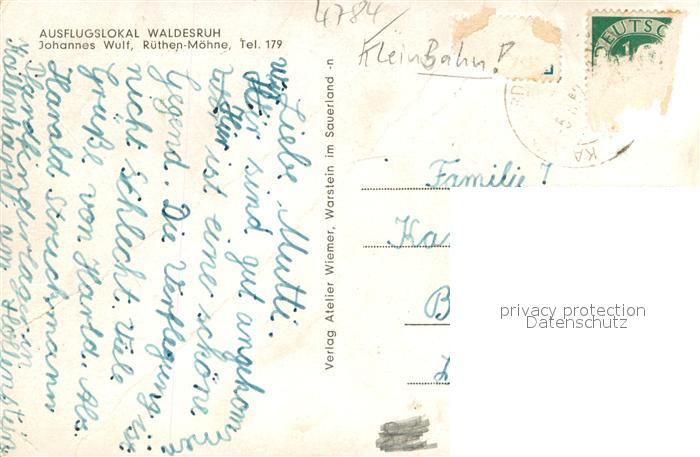 AUSFLUGSLOKAL WALDESRUH
Johannes Wulf, Rüthen-Möhne, Tel. 179
4784
KleinBahn!
DEUTSC
Verlag Atelier Wiemer, Warstein im Sauerland -n
Liebe Mutti.
Wir sind gut angekommen
Hier ist eine schöne
Gegend. Die Verflegung ist
nicht Schlecht. Viele
Grüße von Harald. Abs.
Harald Streichmann
Familie
Ka
B
privacy protection
Datenschutz